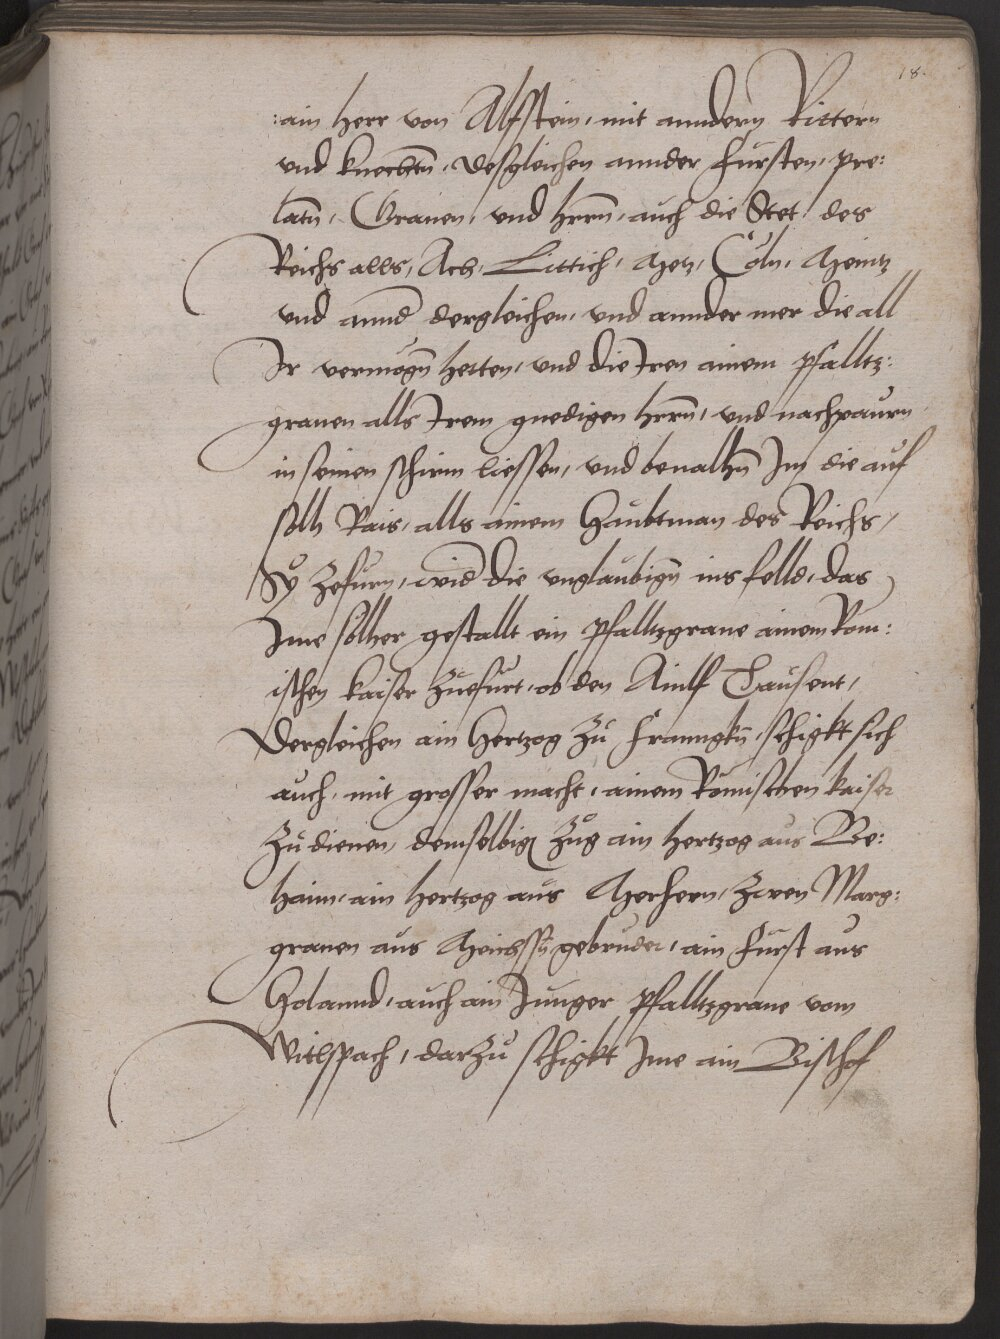 18.
ain herr von Alfstein, mit anndern Rittern
vnd knechten, desgleichen annder Fürsten, pre:
latn, Grauen, vnd hrrn, auch die Stet, des
Reichs alls, Ach, Littich, Metz, Cöln, Meintz
vnd annd dergleichen, vnd annder mer die all
Ir vermögn hetten, vnd die Iren ainem pfalltz:
grauen alls Irem gnedigen hrrn, vnd nachpaurn
in seinen schirm liessen, vnd beualhn Im die auf
sollh Rais, alls ainem Haubtman des Reichs,
Zu Zefurn, wid die vnglaubign ins felld, das
Ime sölher gestallt ein pfalltzgraue ainem Rom:
ischen kaiser Zuefurt, ob den Ainlf Tausent,
Dergleichen ain Hertzog Zu Franngkn, schigkt sich
auch, mit grosser macht, ainem Römischen kaiser
Zu dienen, demselbign Zug ain hertzog aus Be:
haim, ain hertzog aus Merhern, Zwen Marg:
grauen aus Meichssn gebruder, ain Fürst aus
Holannd, auch ain Junger pfalltzgraue vom
Witlspach, darZu schigkt Ime ain Bischof